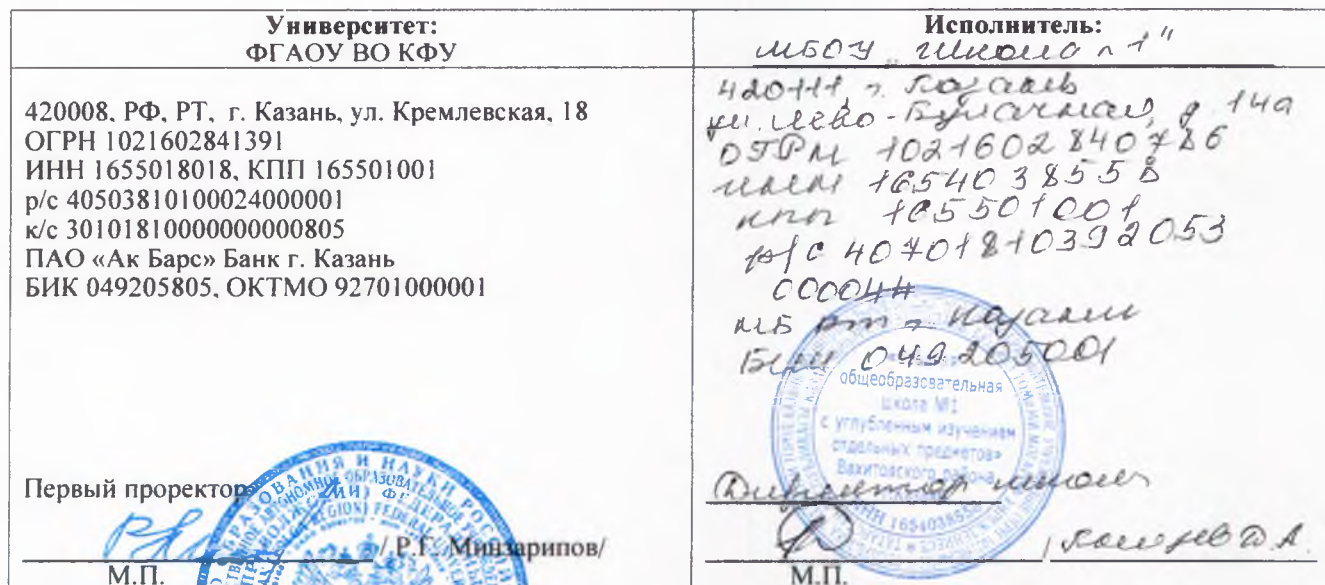 Университет:
ФГАОУ ВО КФУ
420008, РФ, РТ, г. Казань, ул. Кремлевская, 18
ОГРН 1021602841391
ИНН 1655018018, КПП 165501001
р/с 40503810100024000001
к/с 30101810000000000805
ПАО «Ак Барс» Банк г. Казань
БИК 049205805, ОКТМО 92701000001
Первый проректор
/ Р.Г. Минзарипов/
М.П.
Исполнитель:
МБОУ "Школа № 1"
420111, г. Казань
ул. Лево-Булачная, д. 14а
ОГРН 1021602840786
ИНН 1654038558
КПП 165501001
р/с 40701810392053
00004
РТ г. Казани
БИК 049205001
общеобразовательная
школа №1
с углубленным изучением
отдельных предметов»
Вахитовского района
Директор школы
/
М.П.